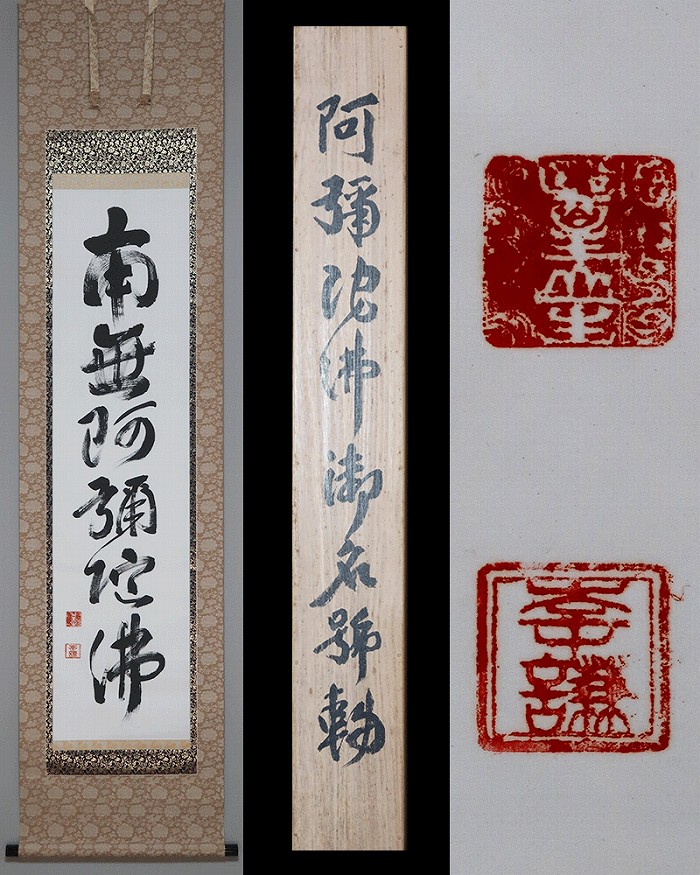 南無阿彌陀佛
阿彌陀佛御名號軸